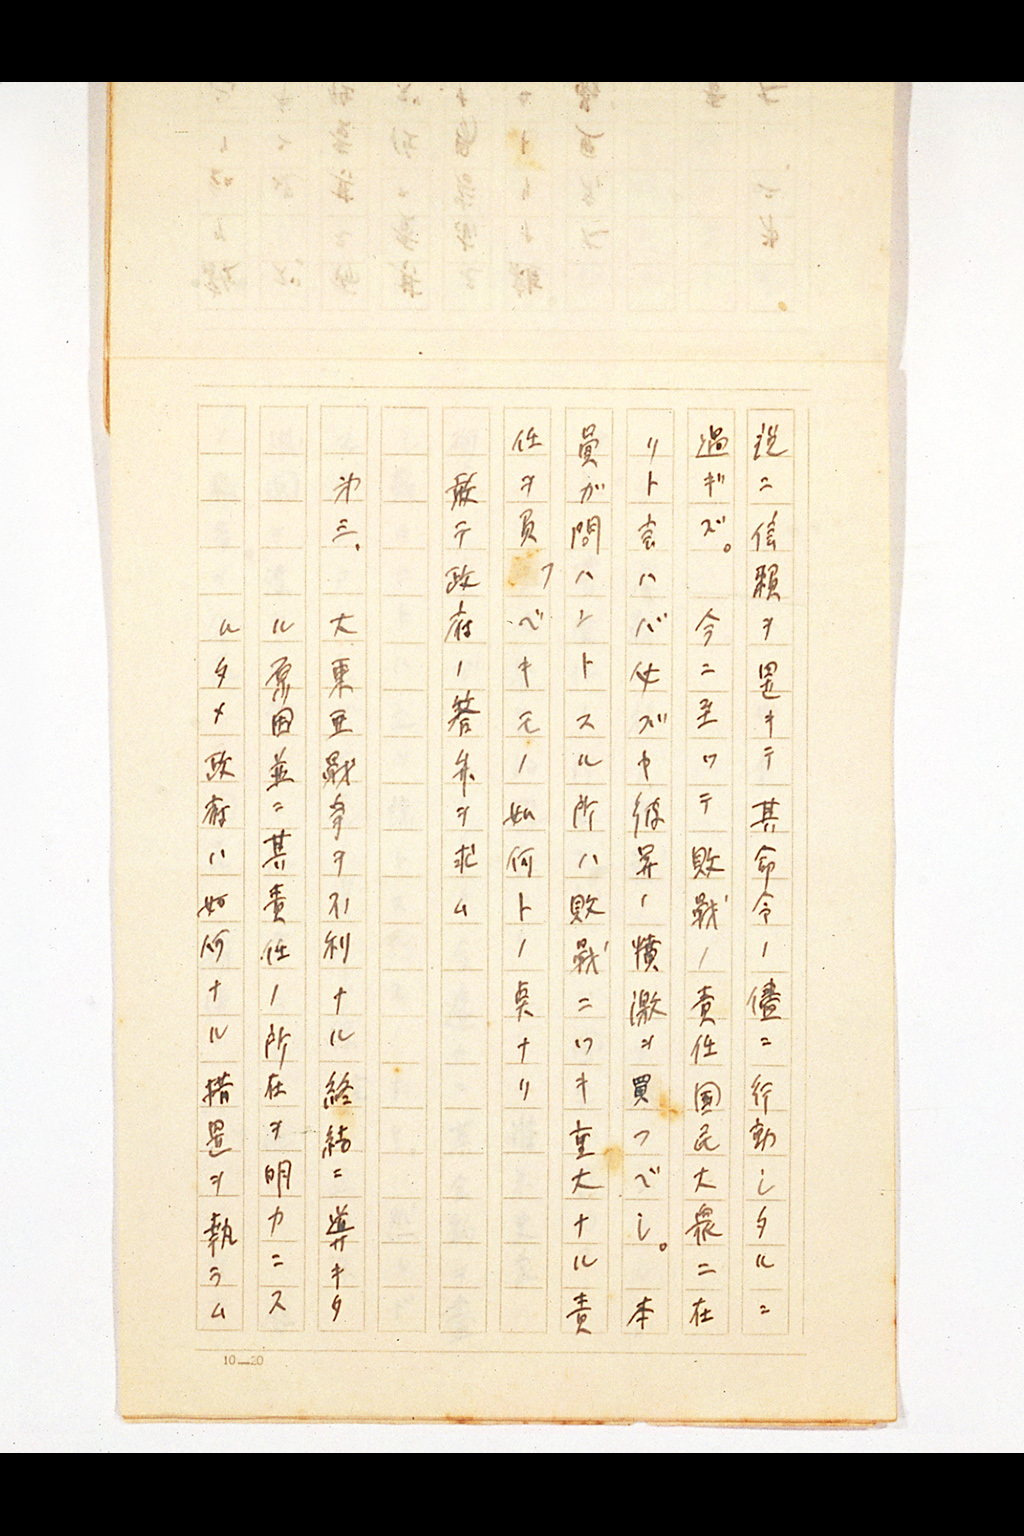 説ニ信頼ヲ置キテ其命令ノ儘ニ行動シタルニ
過ギズ。 今ニ至ツテ敗戦ノ責任国民大衆ニ在
リト言ハバ必ズヤ彼等ノ憤激ヲ買フベシ。 本
員ガ問ハントスル所ハ敗戦ニツキ重大ナル責
任ヲ負フベキ元ノ如何トノ点ナリ
敢テ政府ノ答弁ヲ求ム
第三、 大東亜戦争ヲ不利ナル終結ニ導キタ
ル原因並ニ其責任ノ所在ヲ明カニス
ルタメ政府ハ如何ナル措置ヲ執ラム
10—20